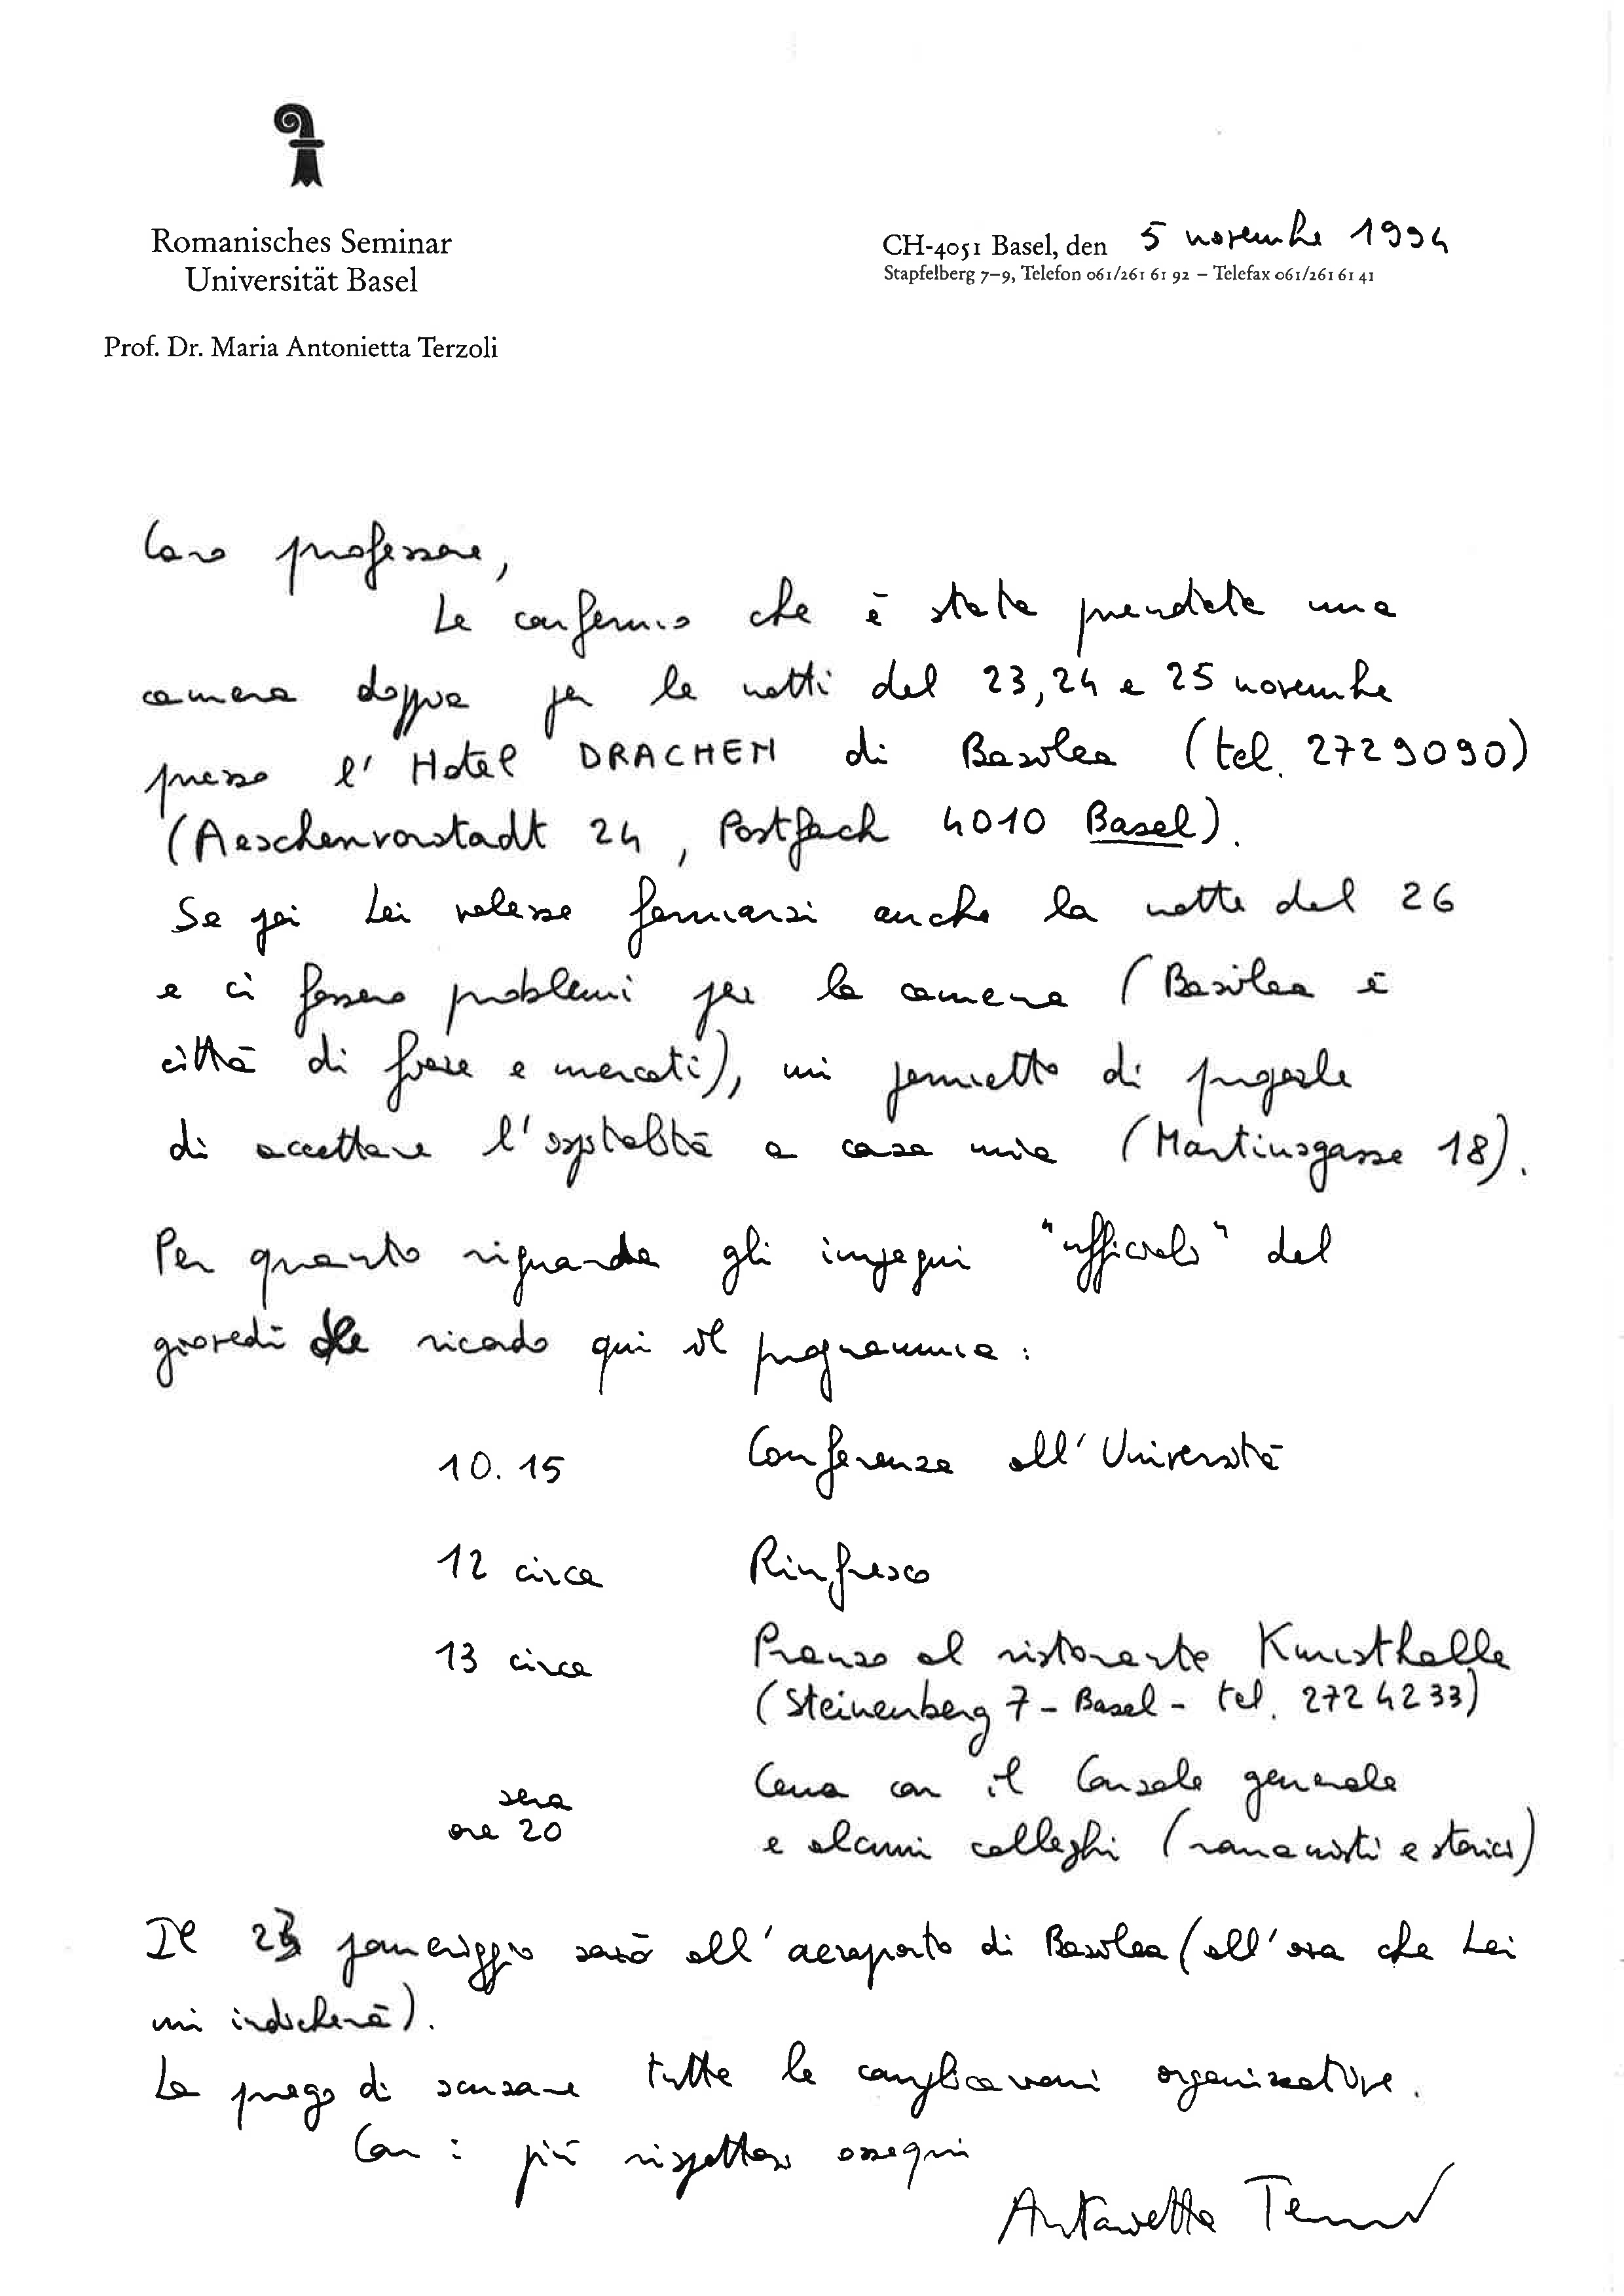 Romanisches Seminar
Universität Basel
Prof. Dr. Maria Antonietta Terzoli
CH-4051 Basel, den 5 novembre 1994
Stapfelberg 7–9, Telefon 061/261 61 92 – Telefax 061/261 61 41
Caro professore,
Le confermo che è stata prenotata una
camera doppia per le notti del 23, 24 e 25 novembre
presso l'Hotel DRACHEN di Basilea (tel. 2729090)
(Aeschenvorstadt 24, Postfach 4010 Basel).
Se poi Lei volesse fermarsi anche la notte del 26
e ci fossero problemi per la camera (Basilea è
città di fiere e mercati), mi permetto di pregarla
di accettare l'ospitalità a casa mia (Martinsgasse 18).
Per quanto riguarda gli impegni "ufficiali" del
giovedì Le ricordo qui il programma:
10.15 Conferenza all'Università
12 circa Rinfresco
13 circa Pranzo al ristorante Kunsthalle
(Steinenberg 7 - Basel - tel. 2724233)
sera
ore 20
Cena con il Console generale
e alcuni colleghi (romanisti e storici)
Il 23 pomeriggio sarò all'aeroporto di Basilea (all'ora che Lei
mi indicherà).
La prego di scusare tutte le complicazioni organizzative.
Con i più rispettosi ossequi
Antonietta Terzoli